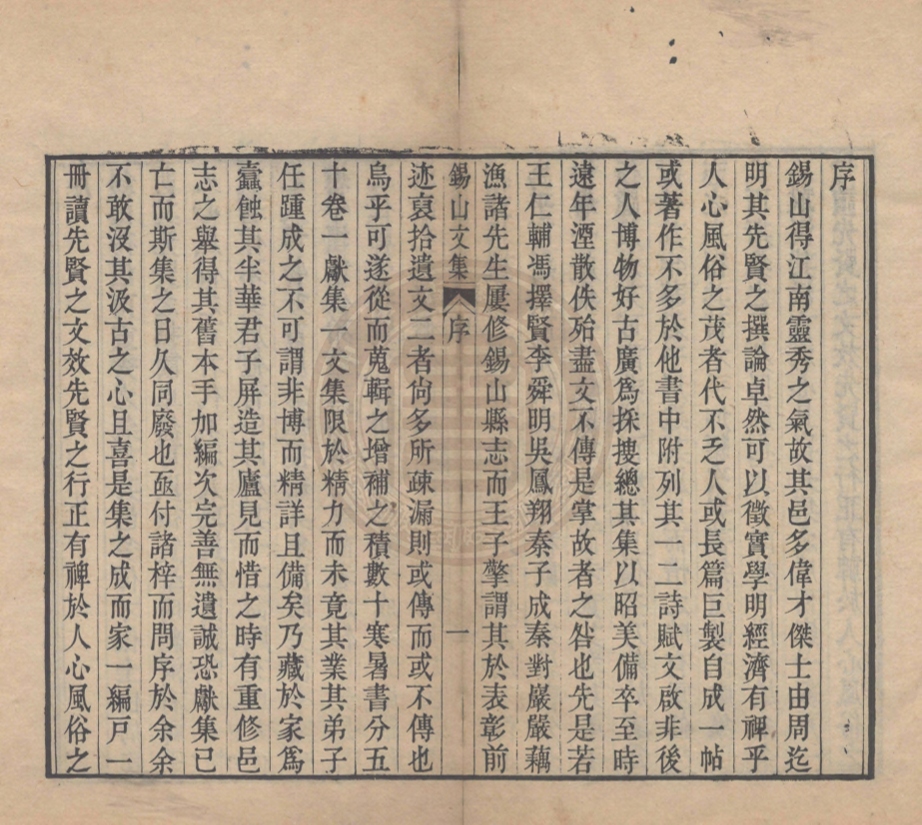 序
錫山得江南靈秀之氣故其邑多偉才傑士由周迄
明其先賢之撰論卓然可以徵實學明經濟有禆乎
人心風俗之茂者代不乏人或長篇巨製自成一帖
或著作不多於他書中附列其一二詩賦文啟非後
之人博物好古廣爲採搜總其集以昭美備卒至時
遠年湮散佚殆盡文不傳是掌故者之咎也先是若
王仁輔馮擇賢李舜明吳鳳翔秦子成秦對巖嚴藕
漁諸先生屢修錫山縣志而王子擎謂其於表彰前
錫山文集 序 一
迹裒拾遺文二者尙多所疎漏則或傳而或不傳也
烏乎可遂從而蒐輯之增補之積數十寒暑書分五
十卷一獻集一文集限於精力而未竟其業其弟子
任踵成之不可謂非博而精詳且備矣乃藏於家爲
蠹蝕其半華君子屏造其廬見而惜之時有重修邑
志之舉得其舊本手加編次完善無遺誠恐獻集已
亡而斯集之日久同廢也亟付諸梓而問序於余余
不敢沒其汲古之心且喜是集之成而家一編戸一
冊讀先賢之文效先賢之行正有禆於人心風俗之